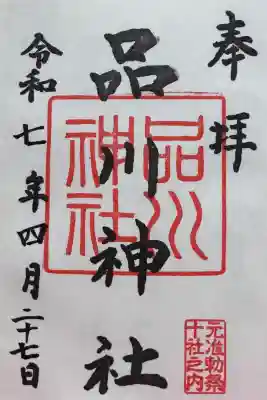 奉拝
品川神社
品川神社
令和七年四月二十七日
元准勅祭
十社之内